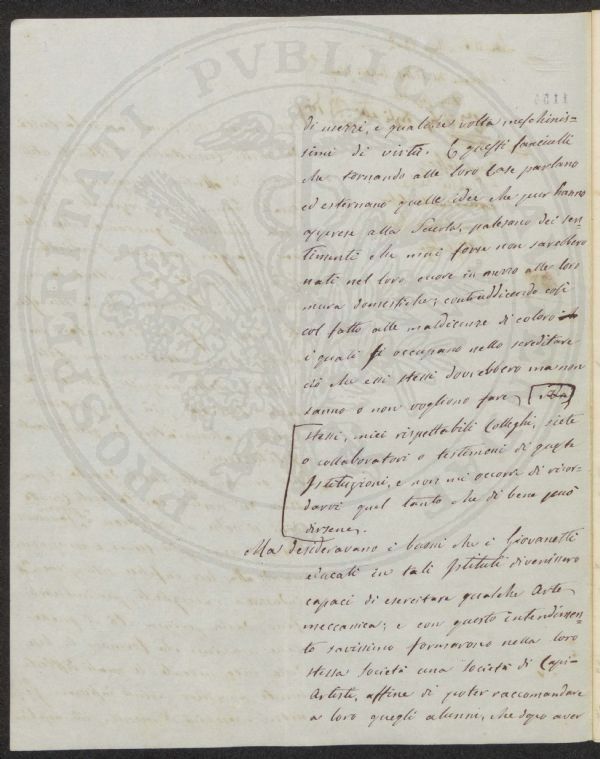 PROSPERITATI PVBLICAE
di mezzi, e qualche volta meschinis-
simi di virtù. E questi fanciulli
che tornando alle loro Case parlano
ed esternano quelle idee che pur hanno
apprese alla Scuola, palesano dei sen-
timenti che mai forse non sarebbero
nati nel loro cuore in mezzo alle loro
mura domestiche; contraddicendo così
col fatto alle maldicenze di coloro
i quali si occupano nello screditare
ciò che essi stessi dovrebbero ma non
sanno o non vogliono fare,
stessi, miei rispettabili Colleghi, siete
o collaboratori o testimoni di queste
Istituzioni, e non mi occorre di ricor-
darvi quel tanto che di bene può
dirsene.
Ma desideravano i buoni che i Giovanetti
educati in tali Istituti divenissero
capaci di esercitare qualche Arte
meccanica; e con questo intendimen-
to savissimo formarono nella loro
stessa Società una Società di Capi-
Artisti, affine di poter raccomandare
a loro quegli alunni, che dopo aver